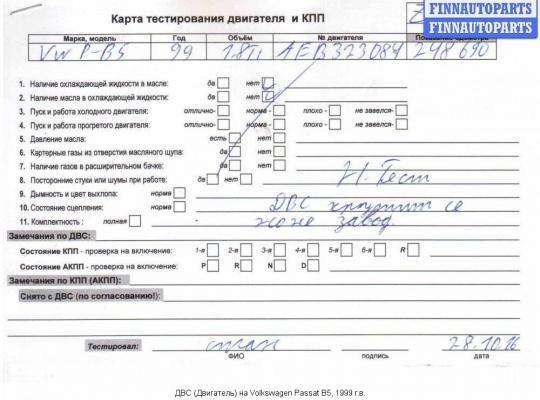 FINNAUTOPARTS
FINNAUTOPARTS
Карта тестирования двигателя и КПП
Марка, модель Год Объём № двигателя Показание одометра
VW P-B5 99 1.8Ti AEB323084 248 690
1. Наличие охлаждающей жидкости в масле: да нет
2. Наличие масла в охлаждающей жидкости: да нет
3. Пуск и работа холодного двигателя: отлично- норма - плохо - не завелся-
4. Пуск и работа прогретого двигателя: отлично- норма - плохо - не завелся-
5. Давление масла: есть нет
6. Картерные газы из отверстия масляного щупа: да нет
7. Наличие газов в расширительном бачке: да нет
8. Посторонние стуки или шумы при работе: да нет
Н-Тест
9. Дымность и цвет выхлопа: норма
10. Состояние сцепления: норма
ДВС
11. Комплектность : полная
завод.
Замечания по ДВС:
Состояние КПП - проверка на включение: 1-я 2-я 3-я 4-я 5-я 6-я R
Состояние АКПП - проверка на включение: P R N D
Замечания по КПП (АКПП):
Снято с ДВС (по согласованию!):
Тестировал: 28.10.16
ФИО подпись дата
ДВС (Двигатель) на Volkswagen Passat B5, 1999 г.в.